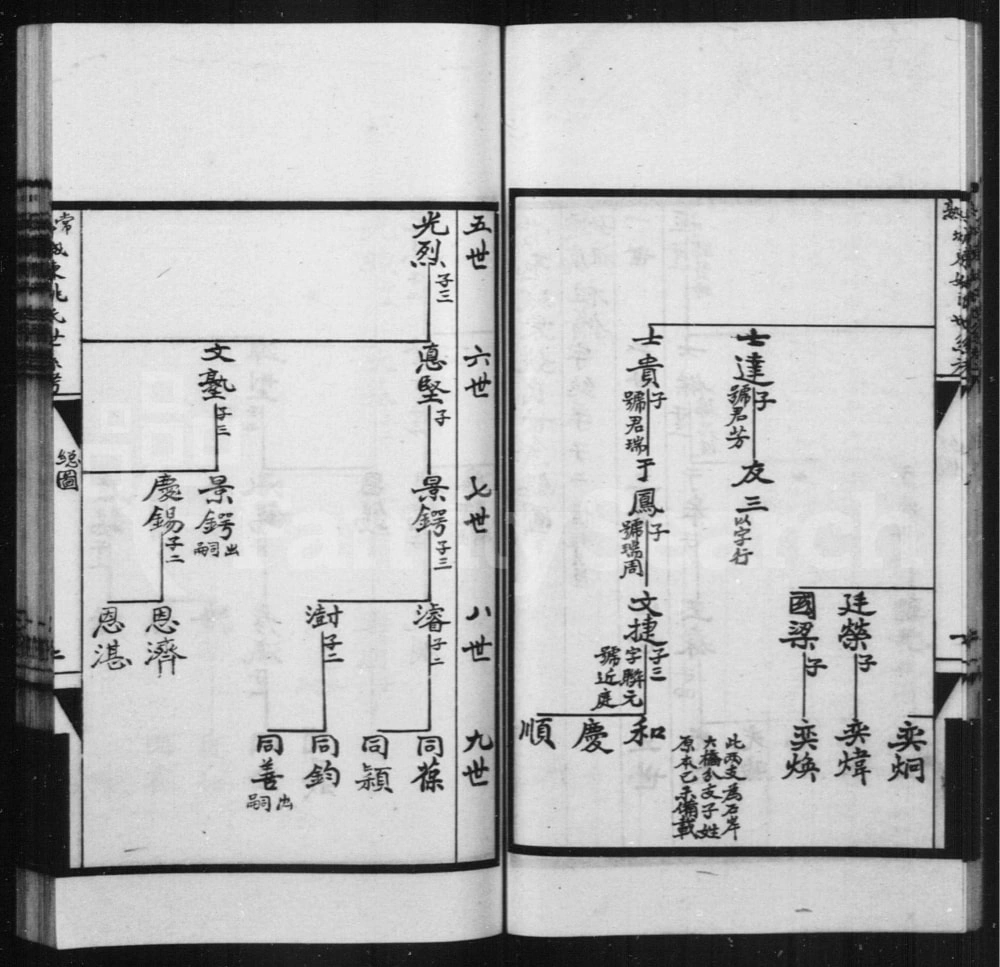 奕炯
廷榮 子
奕煒
國梁 子
奕煥
士達 子
號君芳
友三
以字行
此兩支為石岸
大橋分支子姓
原本已未備載
士貴 子
號君瑞
于鳳 子
號瑞周
文捷 子三
字聯元
號近庭
和
慶
順
五世
六世
七世
八世
九世
光烈 子三
憲堅 子
景鍔 子三
濬 子二
同葆
同穎
澍 子二
同鈞
同善 出嗣
文塾 子三
景鍔 出嗣
慶錫 子二
恩濟
恩湛
總圖